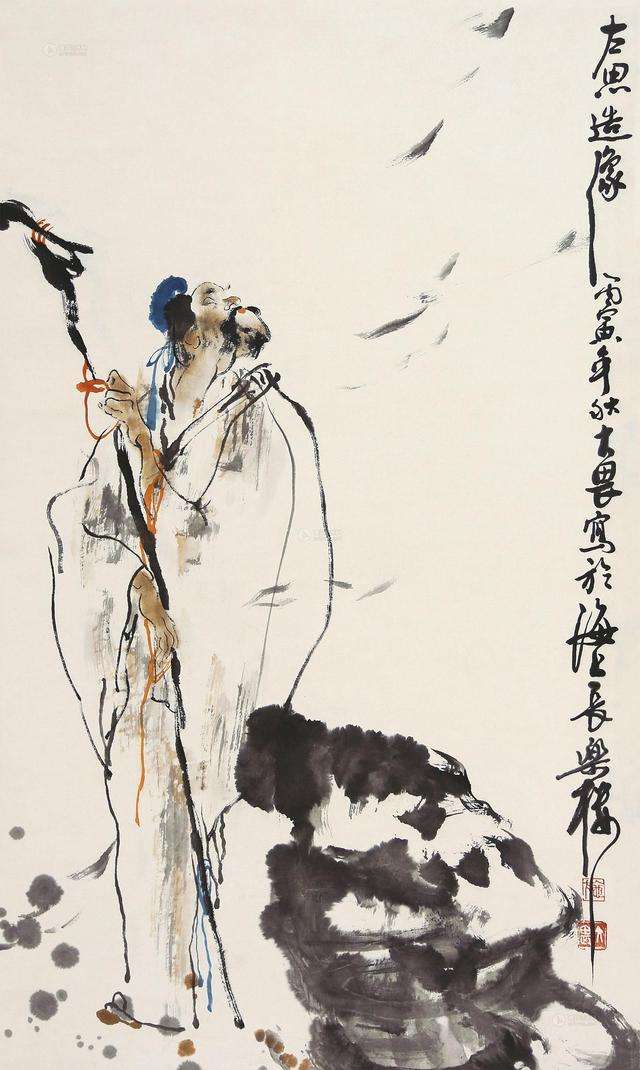 左思造像丙寅年秋大畏寫於海上長樂樓